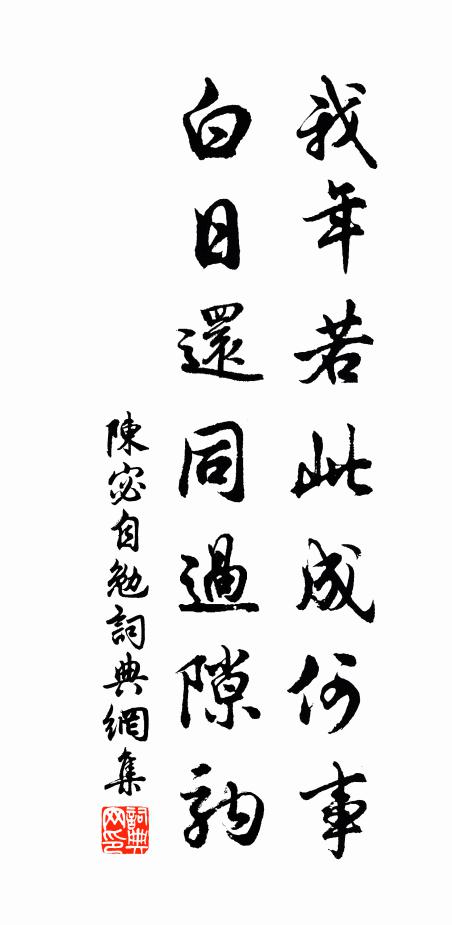 我年若此成何事
白日還同過隙駒
陳宓自勉詞典網集
詞典网印